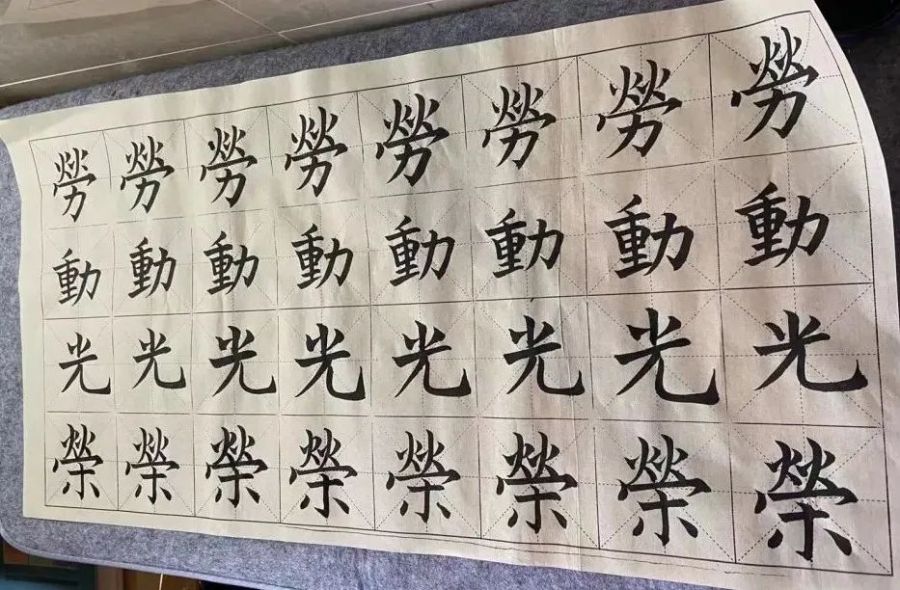 勞勞勞勞勞勞勞勞
動動動動動動動動
光光光光光光光光
榮榮榮榮榮榮榮榮